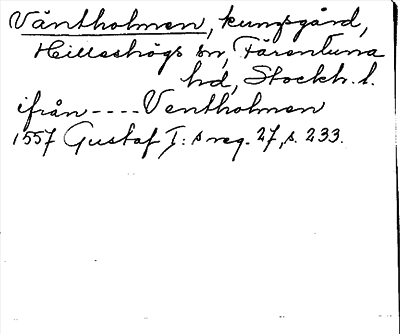 Väntholmen, kungsgård,
Hilleshögs sn, Färentuna
hd, Stockh. l.
ifrån ---- Ventholmen
1557 Gustaf I:s reg. 27, s. 233.